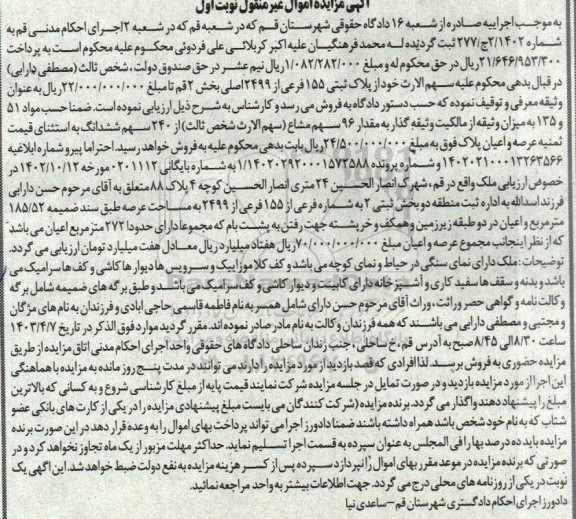 آگهی مزایده اموال غیر منقول نوبت اول
به موجب اجراییه صادره از شعبه ۱۶ دادگاه حقوقی شهرستان قم که در شعبه قم که در شعبه ۲ اجرای احکام مدنی قم به
شماره ۲/۱۴۰۲ج/۲۷۷ ثبت گردیده له محمد فرهنگیان علیه اکبر کربلائی علی فردوئی محکوم علیه محکوم است به پرداخت
۲۱/۶۴۶/۹۵۳/۳۰۰ریال در حق محکوم له و مبلغ ۱/۰۸۲/۲۸۲/۰۰۰ریال نیم عشر در حق صندوق دولت، شخص ثالث (مصطفی دارابی)
در قبال بدهی محکوم علیه سهم الارث خود از پلاک ثبتی ۱۵۵ فرعی از ۲۴۹۹ اصلی بخش ۲ قم تا مبلغ ۲۲/۰۰۰/۰۰۰/۰۰۰ریال به عنوان
وثیقه معرفی و توقیف نموده که حسب دستور دادگاه به فروش می رسد و کارشناس به شرح ذیل ارزیابی نموده است. ضمنا حسب مواد ۵۱
و ۱۳۵ به میزان وثیقه از مالکیت وثیقه گذار به مقدار ۹۶ سهم مشاع (سهم الارث شخص ثالث) از ۲۴۰ سهم ششدانگ به استثنای قیمت
ثمنیه عرصه و اعیان پلاک فوق به مبلغ ۲۴/۵۰۰/۰۰۰/۰۰۰ریال بابت بدهی محکوم علیه به فروش خواهد رسید. احتراما پیرو شماره ابلاغیه
۱۴۰۲۰۲۱۰۰۰۱۳۲۶۳۵۶۶ و شماره پرونده ۱/۱۴۰۲۰۲۹۲۰۰۰۱۵۷۲۵۸۸ به شماره بایگانی ۰۲۰۱۱۱۲ مورخه ۱۴۰۲/۱۰/۱۲ در
خصوص ارزیابی ملک واقع در قم، شهرک انصار الحسین ۲۴ متری انصار الحسین کوچه ۴ پلاک ۸۸ متعلق به آقای مرحوم حسن دارابی
فرزند اسدالله به اداره ثبت منطقه دو بخش ثبتی ۲ به شماره فرعی از ۱۵۵ فرعی از ۲۴۹۹ به مساحت عرصه طبق سند ضمیمه ۱۸۵/۵۲
متر مربع و اعیان در دو طبقه زیرزمین و همکف و خرپشته جهت رفتن به پشت بام که مجموعا دارای حدودا ۲۷۲ متر مربع اعیان می باشد
که از نظر اینجانب مجموع عرصه و اعیان مبلغ ۷۰/۰۰۰/۰۰۰/۰۰۰ریال هفتاد میلیارد ریال معادل هفت میلیارد تومان ارزیابی می گردد.
توضیحات: ملک دارای نمای سنگی در حیاط و نمای کوچه می باشد و کف کلا موزاییک و سرویس ها دیوار ها کاشی و کف ها سرامیک می
باشد و بدنه و سقف ها سفید کاری و آشپزخانه دارای کابینت و دیوار کاشی و کف سرامیک می باشد و طبق برگه های ضمیمه شامل برگه
وکالت نامه و گواهی حصر وراثت، وراث آقای مرحوم حسن دارای شامل همسر به نام فاطمه قاسمی حاجی ابادی و فرزندان به نام های مژگان
و مجتبی و مصطفی دارابی می باشند که همه فرزندان وکالت به نام مادر صادر نموده اند. مقرر گردید موارد فوق الذکر در تاریخ ۱۴۰۳/۴/۷
ساعت ۸/۳۰الی ۸/۴۵صبح به آدرس قم، خ ساحلی، جنب زندان ساحلی دادگاه های حقوقی واحد اجرای احکام مدنی اتاق مزایده از طریق
مزایده حضوری به فروش برسد. لذا افرادی که قصد بازدید از مورد مزایده را دارند می تواند در مدت پنج روز مانده به مزایده با هماهنگی
این اجرا از مورد مزایده بازدید و در صورت تمایل در جلسه مزایده شرکت نمایند قیمت پایه از مبلغ کارشناسی شروع و به کسانی که بالاترین
مبلغ را پیشنهاد دهند واگذار می گردد. برنده مزایده (شرکت کنندگان می بایست مبلغ پیشنهادی مزایده را در یکی از کارت های بانکی عضو
شتاب که به نام خود شخص باشد همراه داشته باشند ضمنا دادورز اجرا می تواند پرداخت بهای اموال را به وعده قرار دهد در این صورت برنده
مزایده باید ده درصد بها را فی المجلس به عنوان سپرده به قسمت اجرا تسلیم نماید. حداکثر مهلت مزبور از یک ماه تجاوز نخواهد کرد و در
صورتی که برنده مزایده در موعد مقرر بهای اموال را نپردازد سپرده پس از کسر هزینه مزایده به نفع دولت ضبط خواهد شد. این اگهی یک
نوبت در یکی از روزنامه های محلی درج می گردد. جهت اطلاعات بیشتر به واحد مراجعه نمائید.
دادورز اجرای احکام دادگستری شهرستان قم - ساعدی نیا